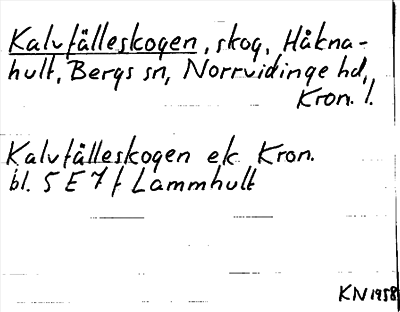 Kalvfälleskogen, skog, Håkna-
hult, Bergs sn, Norrvidinge hd,
Kron. l.
Kalvfälleskogen ek Kron.
bl. 5 E 7 f Lammhult
KN 1958